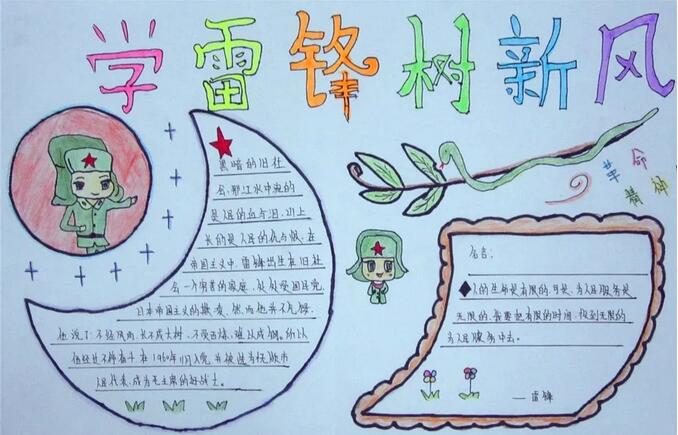 学雷锋树新风
黑暗的旧社
会,那江水中流的
是人民的血与泪,山上
长的是人民的仇与恨,在
帝国主义中,雷锋出生在旧社
会一个穷苦的家庭,处处受国民党,
日本帝国主义的欺衣,然而他并不气馁,
他说了:不经风雨,长不成大树,不受百炼,难以成钢。所以
他经过不停奋斗在1960年11月入党,并被选为抚顺市
人民代表,成为毛主席的好战士。
革命
精神
名言:
人的生命是有限的,可是,为人民服务是
无限的,我要把有限的时间,投到无限的
为人民服务中去。
——雷锋